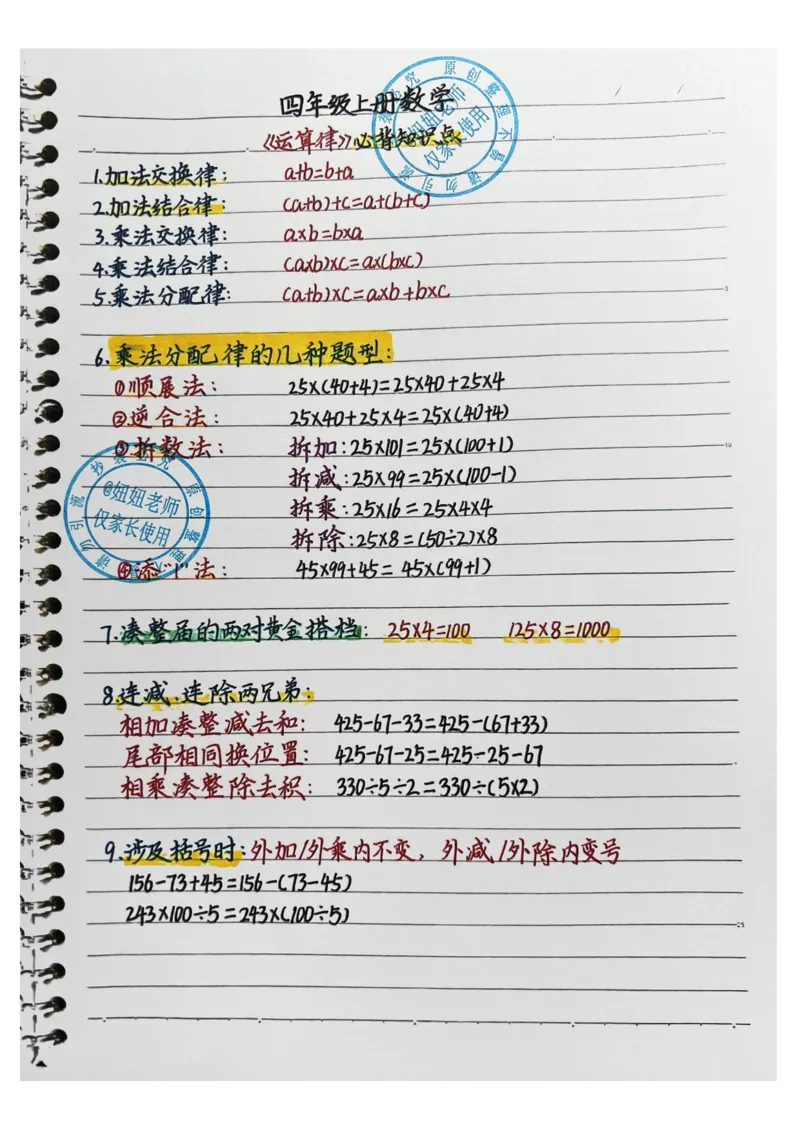 四年级上册数学
《运算律》必背知识点
1.加法交换律： a+b=b+a
2.加法结合律： (a+b)+c=a+(b+c)
3.乘法交换律： a×b=b×a
4.乘法结合律： (a×b)×c=a×(b×c)
5.乘法分配律： (a+b)×c=a×b+b×c
6.乘法分配律的几种题型：
①顺展法： 25×(40+4)=25×40+25×4
②逆合法： 25×40+25×4=25×(40+4)
③拆数法： 拆加：25×101=25×(100+1)
拆减：25×99=25×(100-1)
拆乘：25×16=25×4×4
拆除：25×8=(50÷2)×8
④添"1"法： 45×99+45=45×(99+1)
7.凑整届的两对黄金搭档： 25×4=100 125×8=1000
8.连减、连除两兄弟：
相加凑整减去和： 425-67-33=425-(67+33)
尾部相同换位置： 425-67-25=425-25-67
相乘凑整除去积： 330÷5÷2=330÷(5×2)
9.涉及括号时：外加/外乘内不变，外减/外除内变号
156-73+45=156-(73-45)
243×100÷5=243×(100÷5)
@妞妞老师
仅家长使用
妞妞老师
仅家长使用